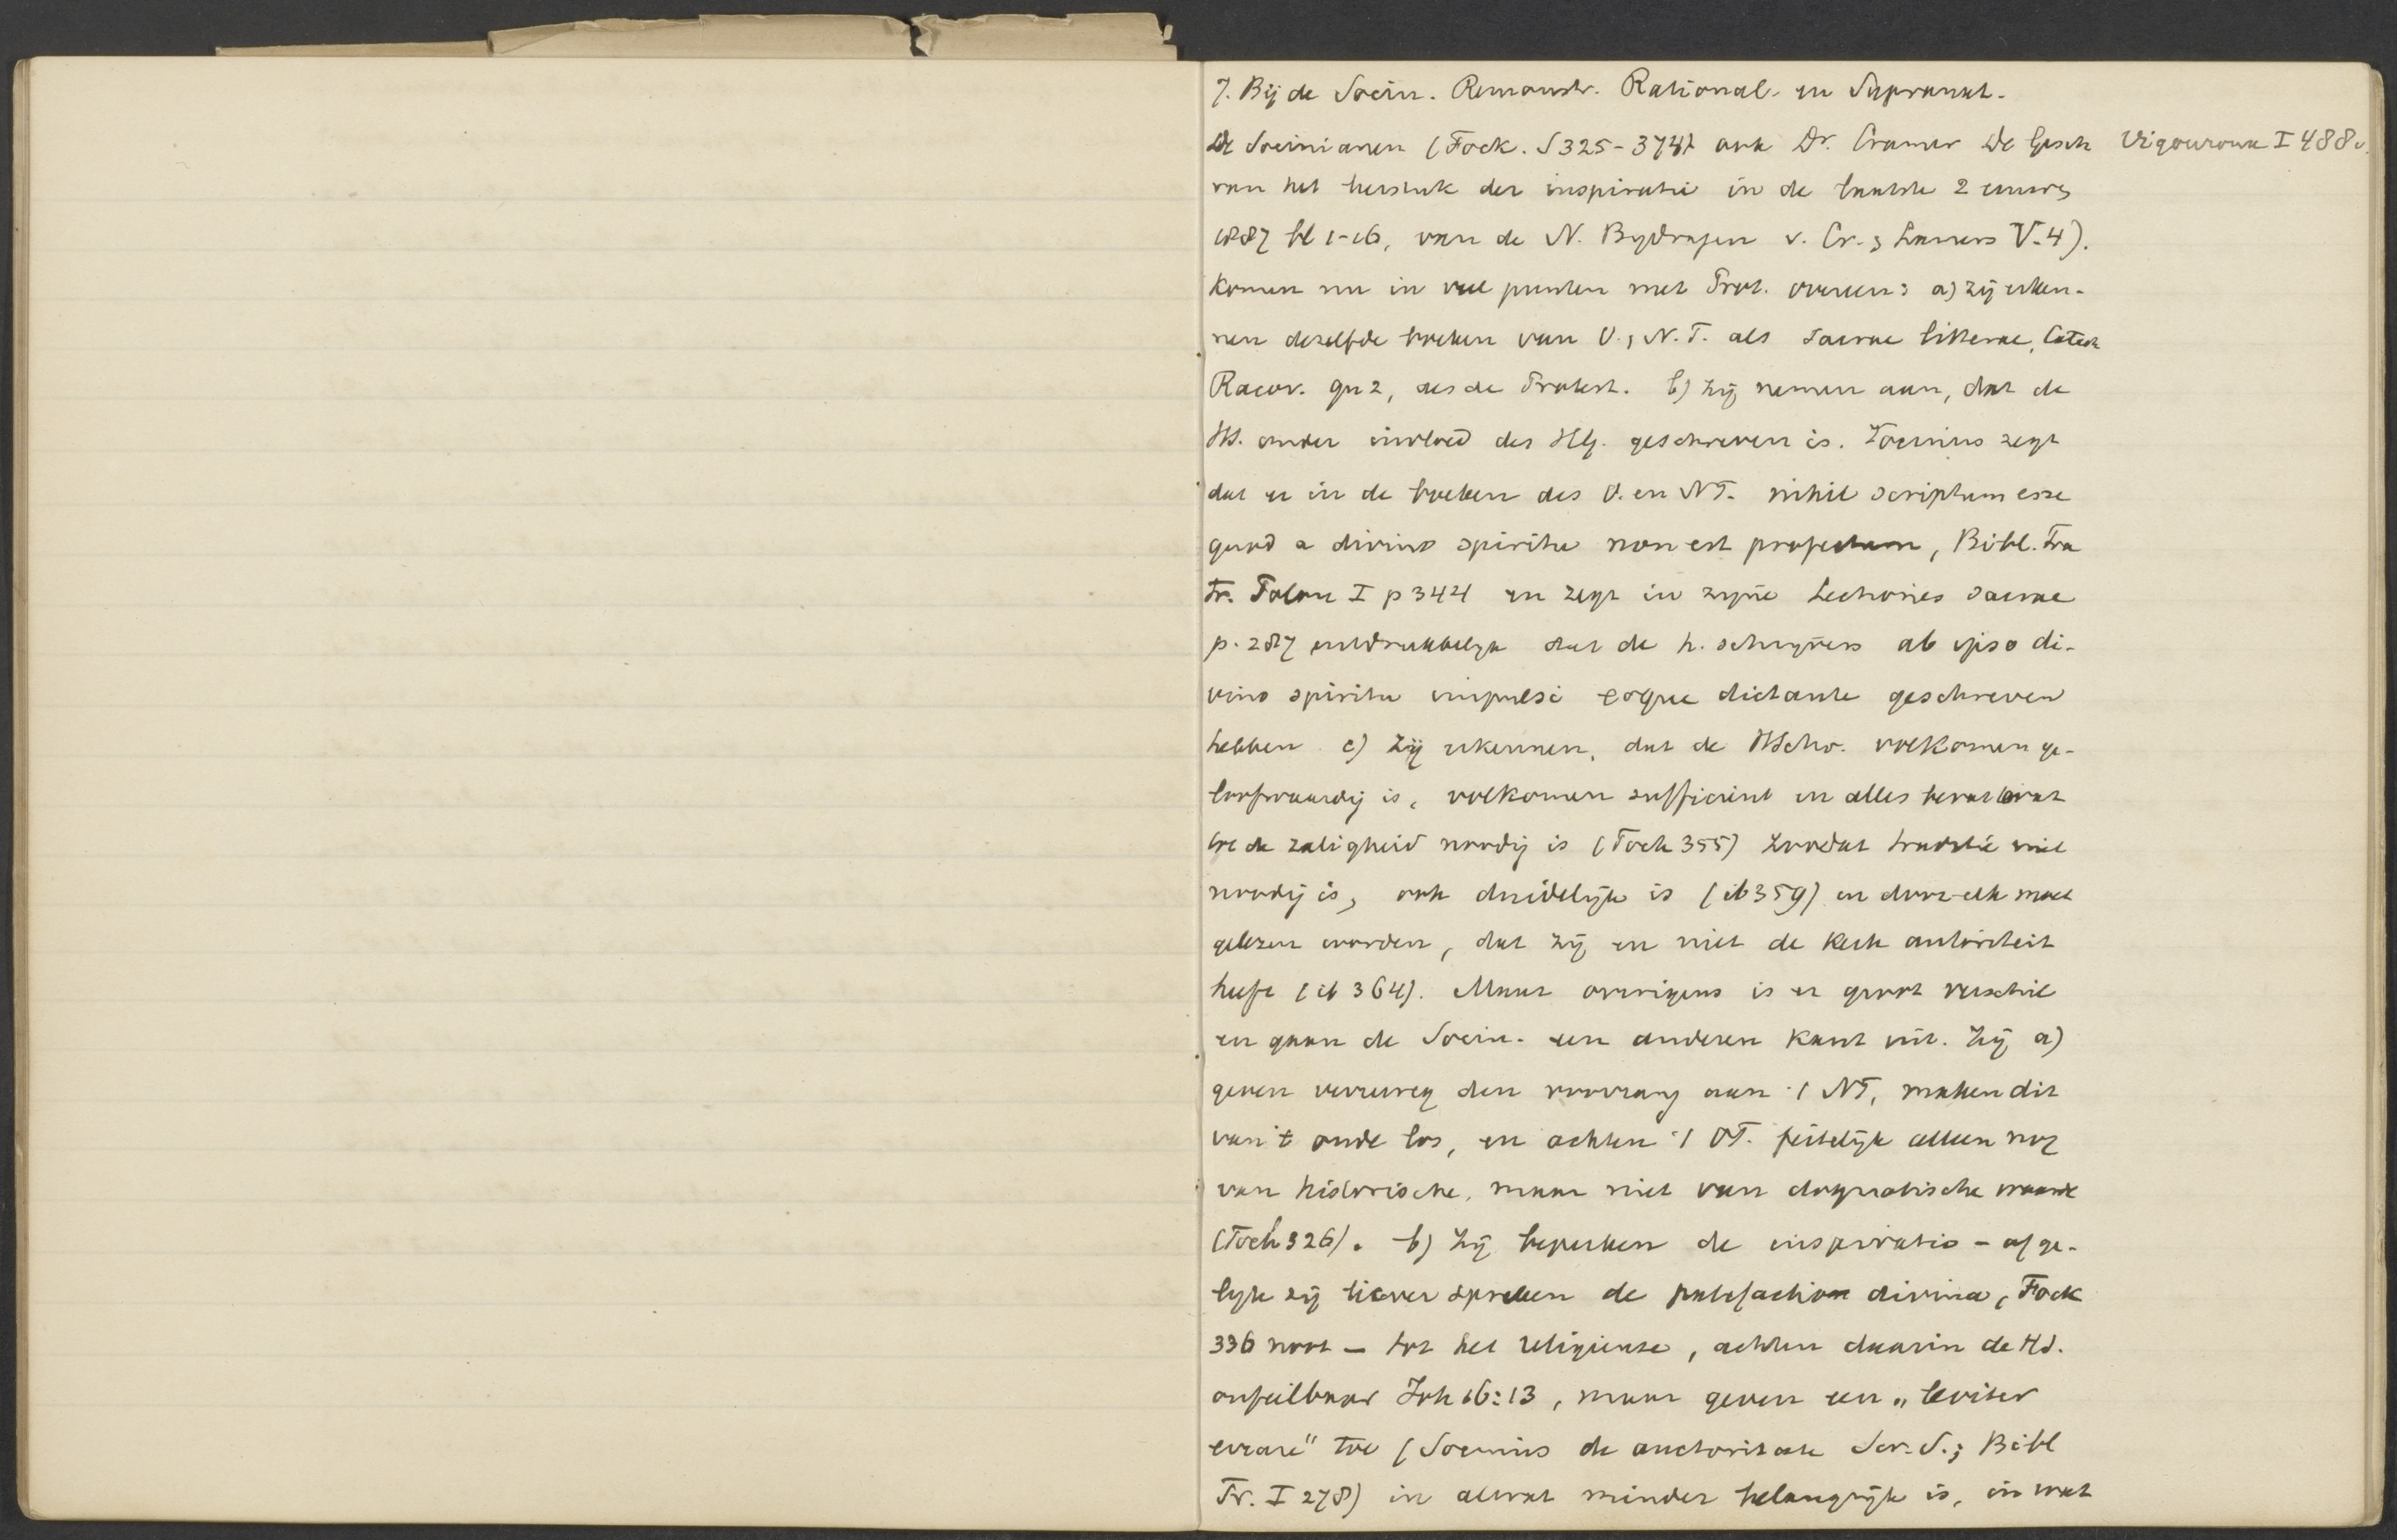 7. Bij de Socin. Remonstr. Rational. en Supranat.
De Socinianen (Fock. S 325-374) ook Dr. Cramer De Gesch
Vigouroux I 488v.
van het leerstuk der inspiratie in de laatste 2 eeuwen
1887 bl 1-16, van de N. Bydragen v. Cr. & Lamers V. 4).
komen nu in veel punten met Prot. overeen: a) zij erken-
nen dezelfde boeken van O. & N. T. als sacrae litterae, Catech
Racov. qu 2, als de Protest. b) zij nemen aan, dat de
HS. onder invloed des HG. geschreven is. Socinus zegt
dat er in de boeken des O. en NT. nihil scriptum esse
quod a divino spiritu non est profectum, Bibl. Fra
Fr. Polon I p 344 en zegt in zyne Lectiones sacrae
p. 287 uitdrukkelyk dat de h. schryvers ab ipso di-
vino spiritu impulsi eoque dictante geschreven
hebben c) zij erkennen, dat de HSchr. volkomen ge-
loofwaardig is, volkomen sufficient en alles bevat wat
tot de zaligheid noodig is (Fock 355) zoodat traditie niet
noodig is, ook duidelijk is (ib 359) en door elk moet
gelezen worden, dat zij en niet de kerk autoriteit
heeft (ib 364). Maar overigens is er groot verschil
en gaan de Socin. een anderen kant uit. Zij a)
geven verreweg den voorrang aan 't NT, maken dit
van 't oude los, en achten 't OT. feitelijk alleen nog
van historische, maar niet van dogmatische waarde
(Fock 326). b) Zij beperken de inspiratio - of ge-
lyk zij liever spreken de patefactio divina, Fock
336 noot - tot het religieuse, achten daarin de HS.
onfeilbaar Joh 16:13, maar geven een „leviter
errare" toe (Socinus de auctoritate Scr. S.; Bibl
Fr. I 278) in alwat minder belangrijk is, in wat